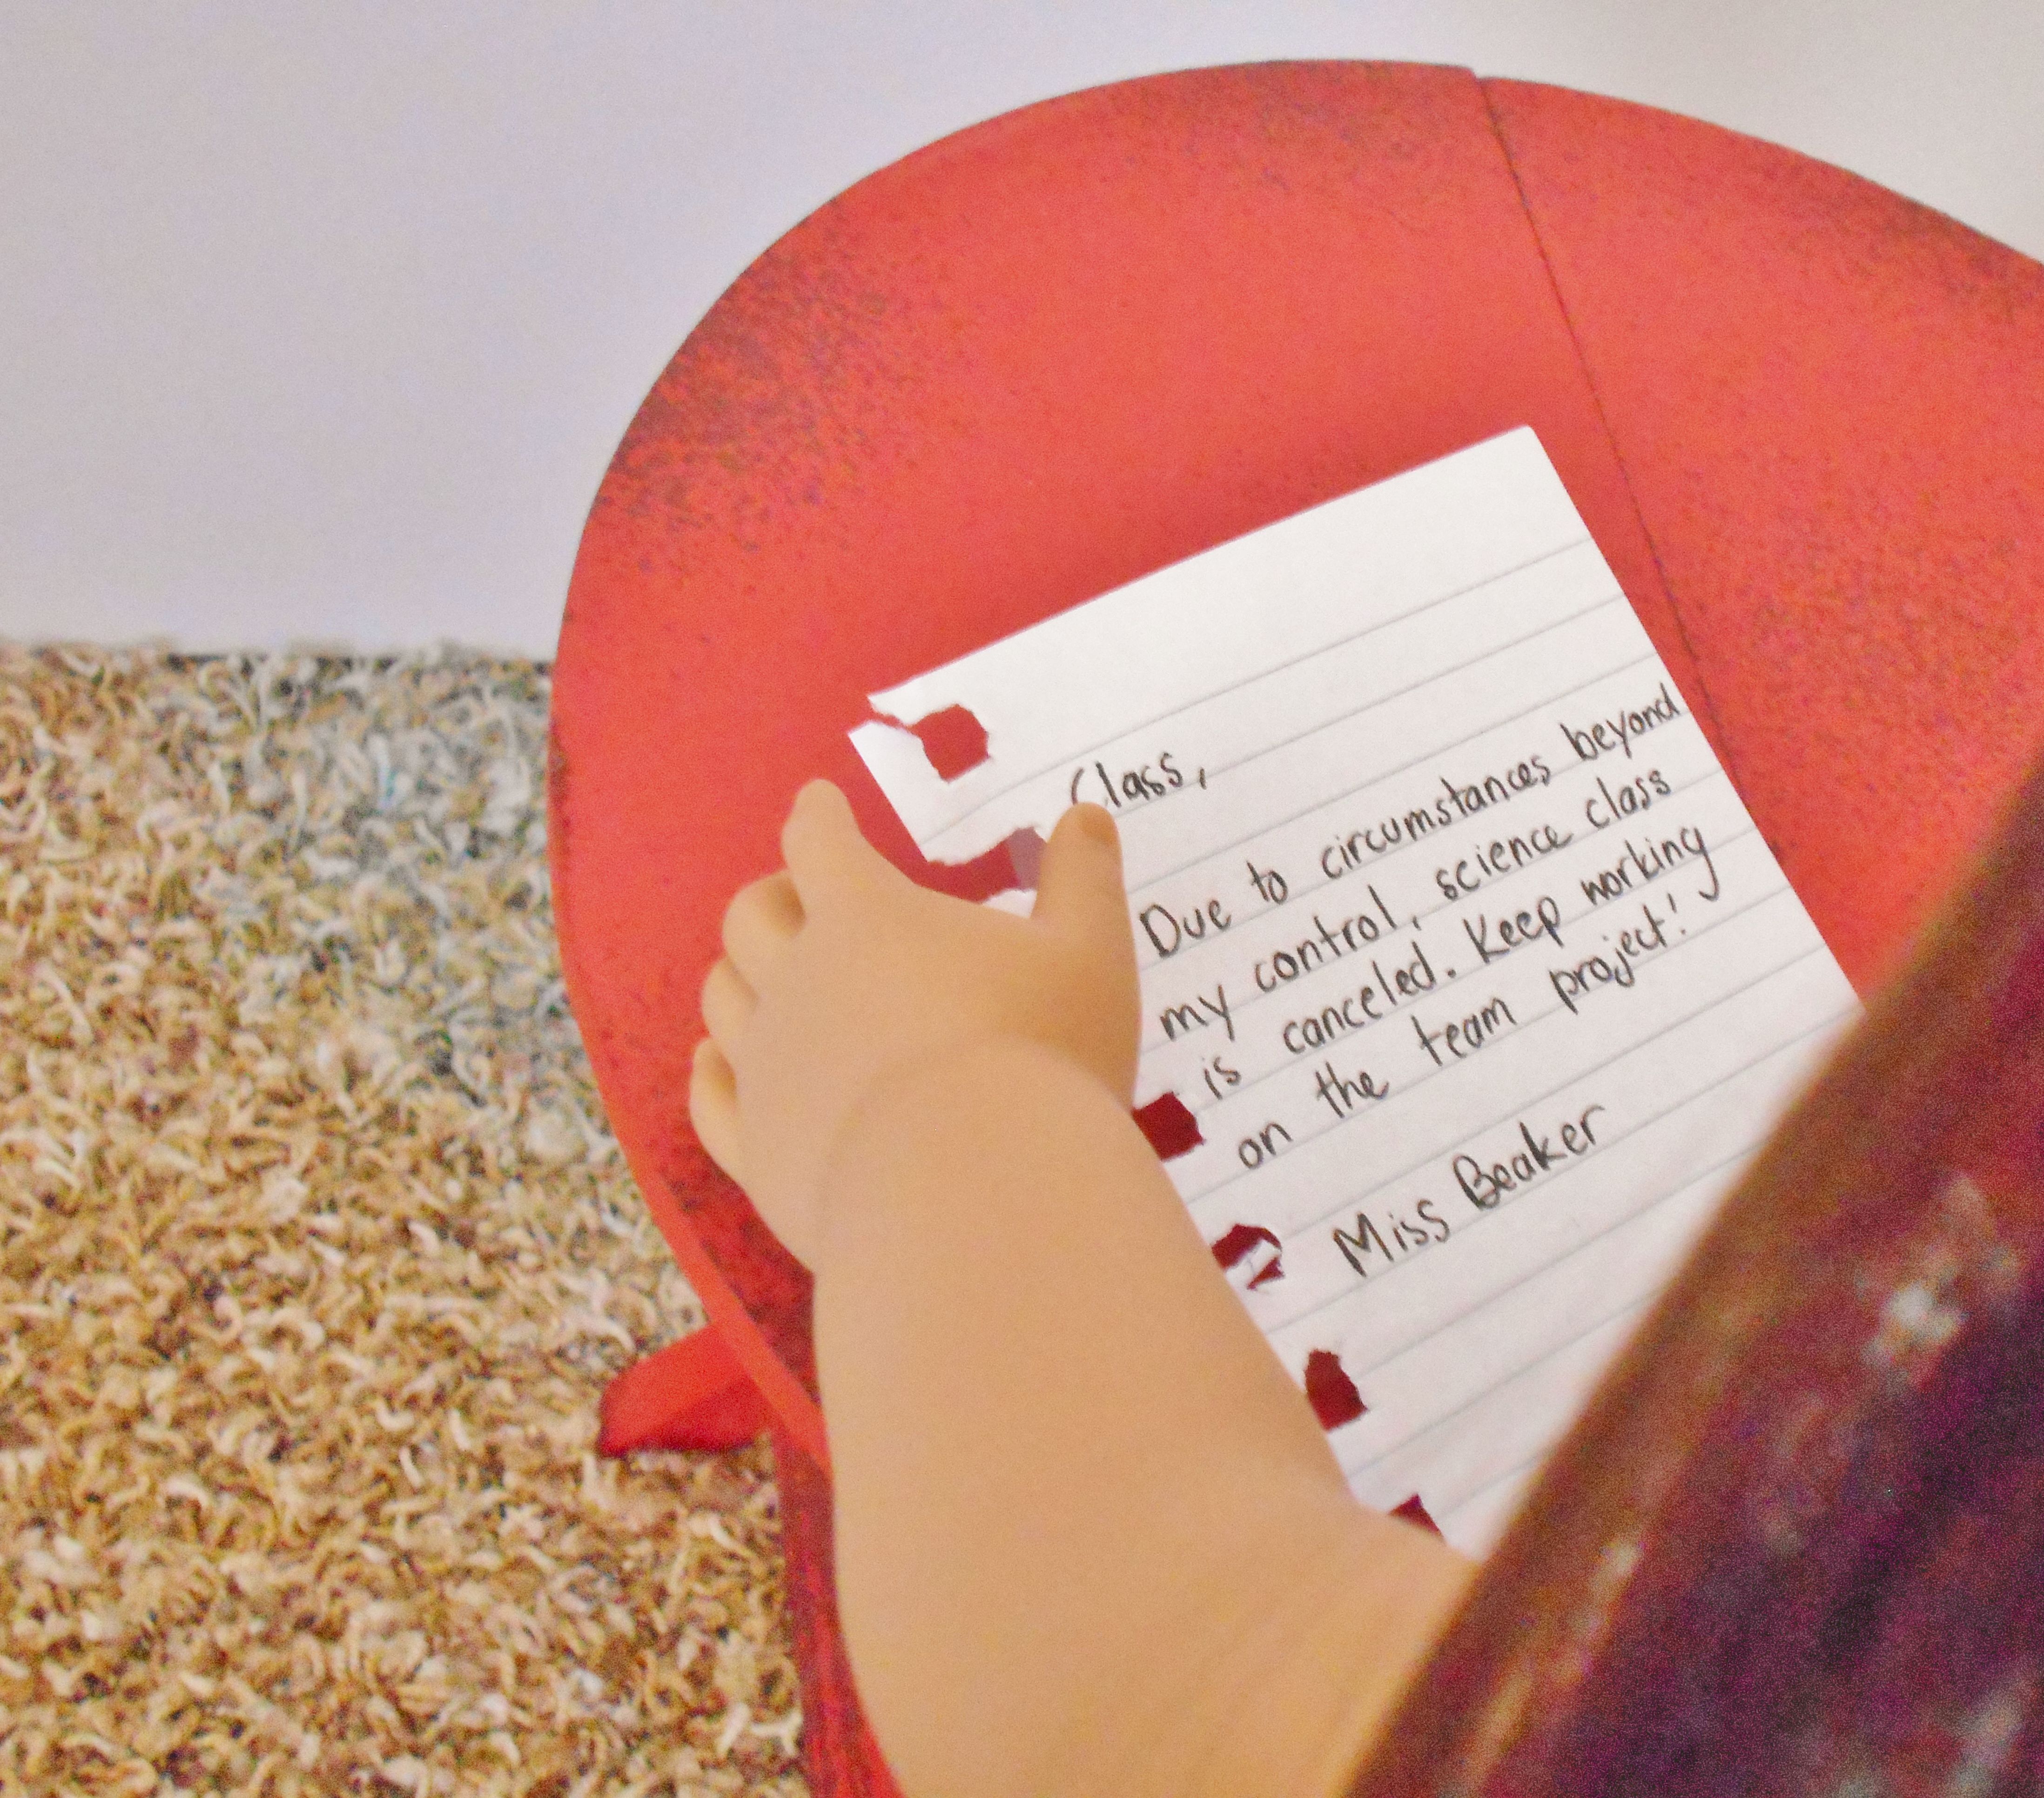 Class,
Due to circumstances beyond
my control, science class
is canceled. Keep working
on the team project!
Miss Beaker